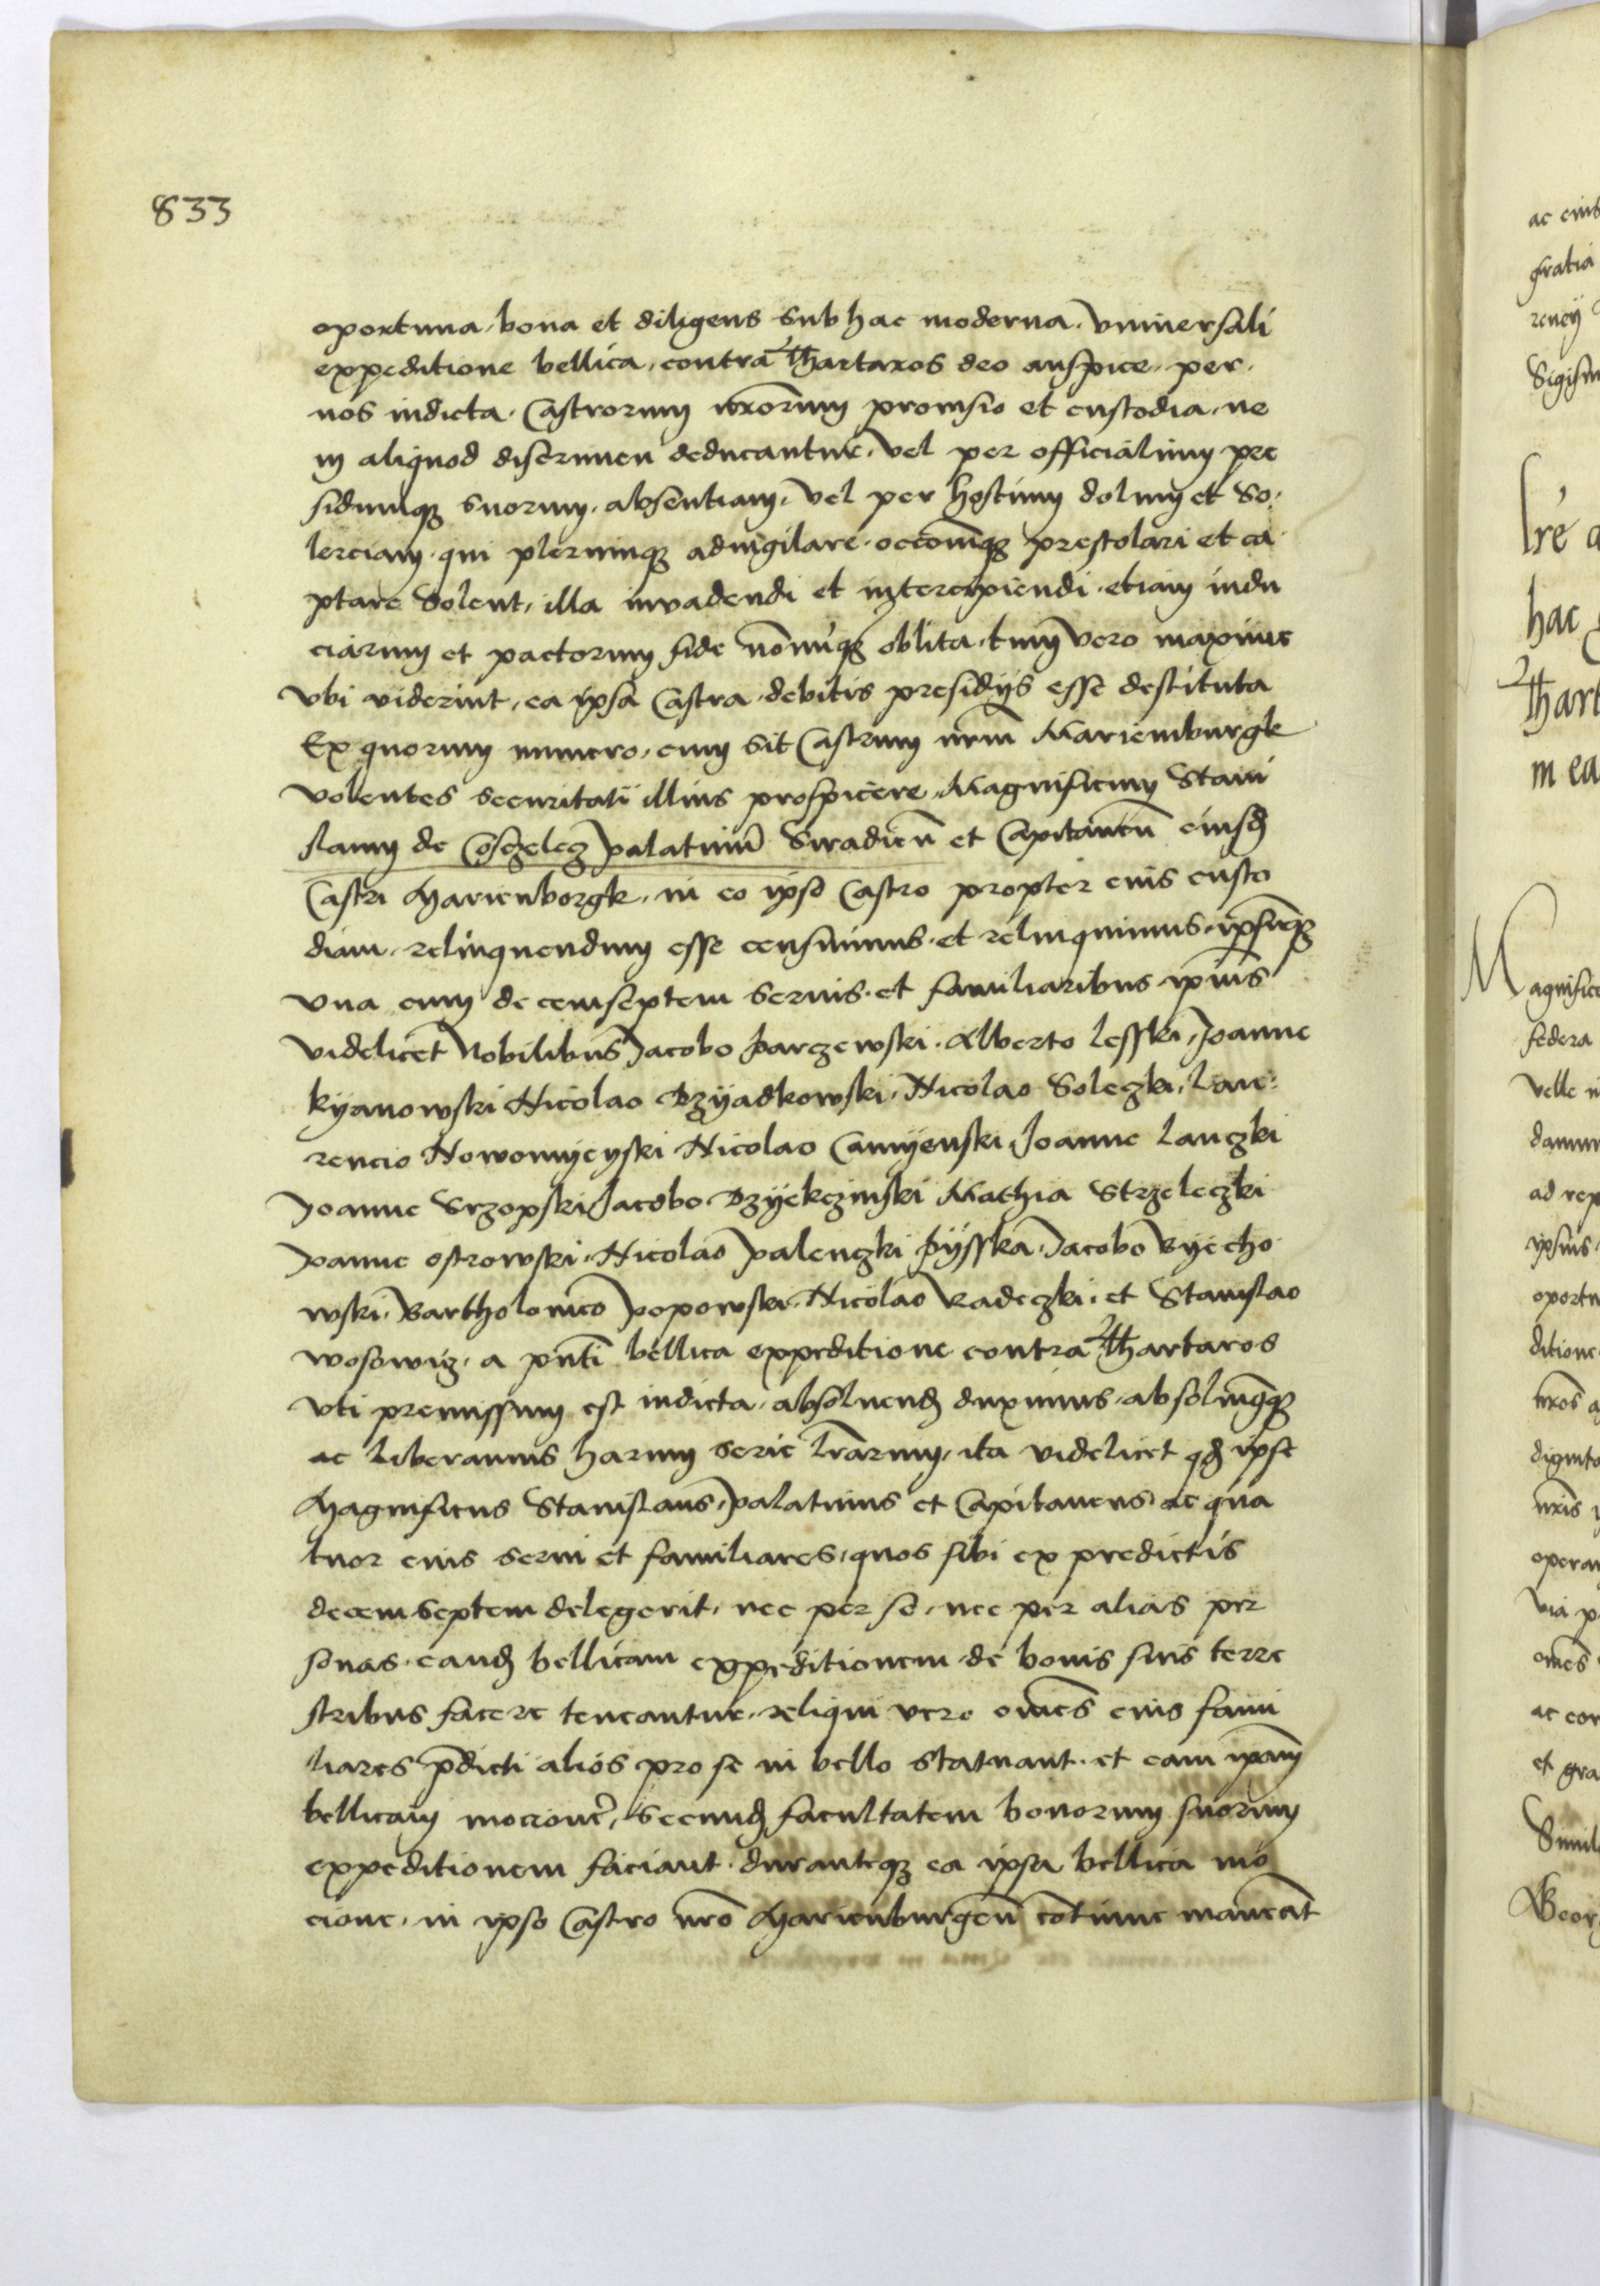 833
oportuna, bona et diligens sub hac moderna, vniuersali
expeditione bellica, contra Thartaros deo auspice, per,
nos indicta, Castrorum nrorum prouisio et custodia, ne
in aliquod discrimen deducantur, vel per officialium pre
sidumq suorum, absentiam, vel per hostium dolum et so,
lerciam, qui plerumq aduigilare, occonemq prestolari et ca
ptare solent, illa invadendi et intercipiendi, etiam indu
ciarum et pactorum fide nonnuq oblita, tum vero maxime
vbi viderint, ea ipsa Castra, debitis presidijs esse destituta
Ex quorum numero, cum sit Castrum nrm Mariemburgk
volentes securitati illius prospicere, Magnificum Stani
slaum de Cosczelecz palatinu Siradien et Capitaneu eiusd
Castri Marienborgk, in eo ipso Castro propter eius custo
diam, relinquendum esse censuimus, et relinquimus, ipsumq
vna cum decemseptem seruis, et familiaribus ipius
videlicet Nobilibus Jacobo parczewski, Alberto lesski, Joanne
kyanowski Nicolao Dzyadkowski, Nicolao Soleczki, Lau,
rencio Nowomyeyski Nicolao Camyenski, Joanne Lanczki
Joanne Srzopski Jacobo Dzyekczinski Mathia Strzeleczki
Joanne ostrowski, Nicolao palenczki pysska, Jacobo Byecho
wski, Bartholomeo popowski, Nicolao Radeczki, et Stanislao
wosowicz, a pnti bellica expeditione contra Thartaros
vti premissum est indicta, absoluend duximus, absoluimq
ac liberamus harum serie lrarum, ita videlicet qd ipse
Magnificus Stanislaus, palatinus et Capitaneus, ac qua
tuor eius serui et familiares, quos sibi ex predictis
decem septem delegerit, nec per se, nec per alias per
sonas, eand bellicam expeditionem de bonis suis terre
stribus facere teneantur, reliqui vero omes eius fami
liares pdicti alios pro se in bello statuant, et eam ipam
bellicam mocione, secund facultatem bonorum suorum
expeditionem faciant, duranteq ea ipsa bellica mo
cione, in ipso Castro nro Marienburgen cotinue maneat
ac eius
gratia
Sigism
lre a
hac
Thart
in ea
Magnifice
federa
velle
ad rep
ipsius
oportu
ditione
nros
nris
operam
via p
omes
ac cor
et gra
Simil
Georg